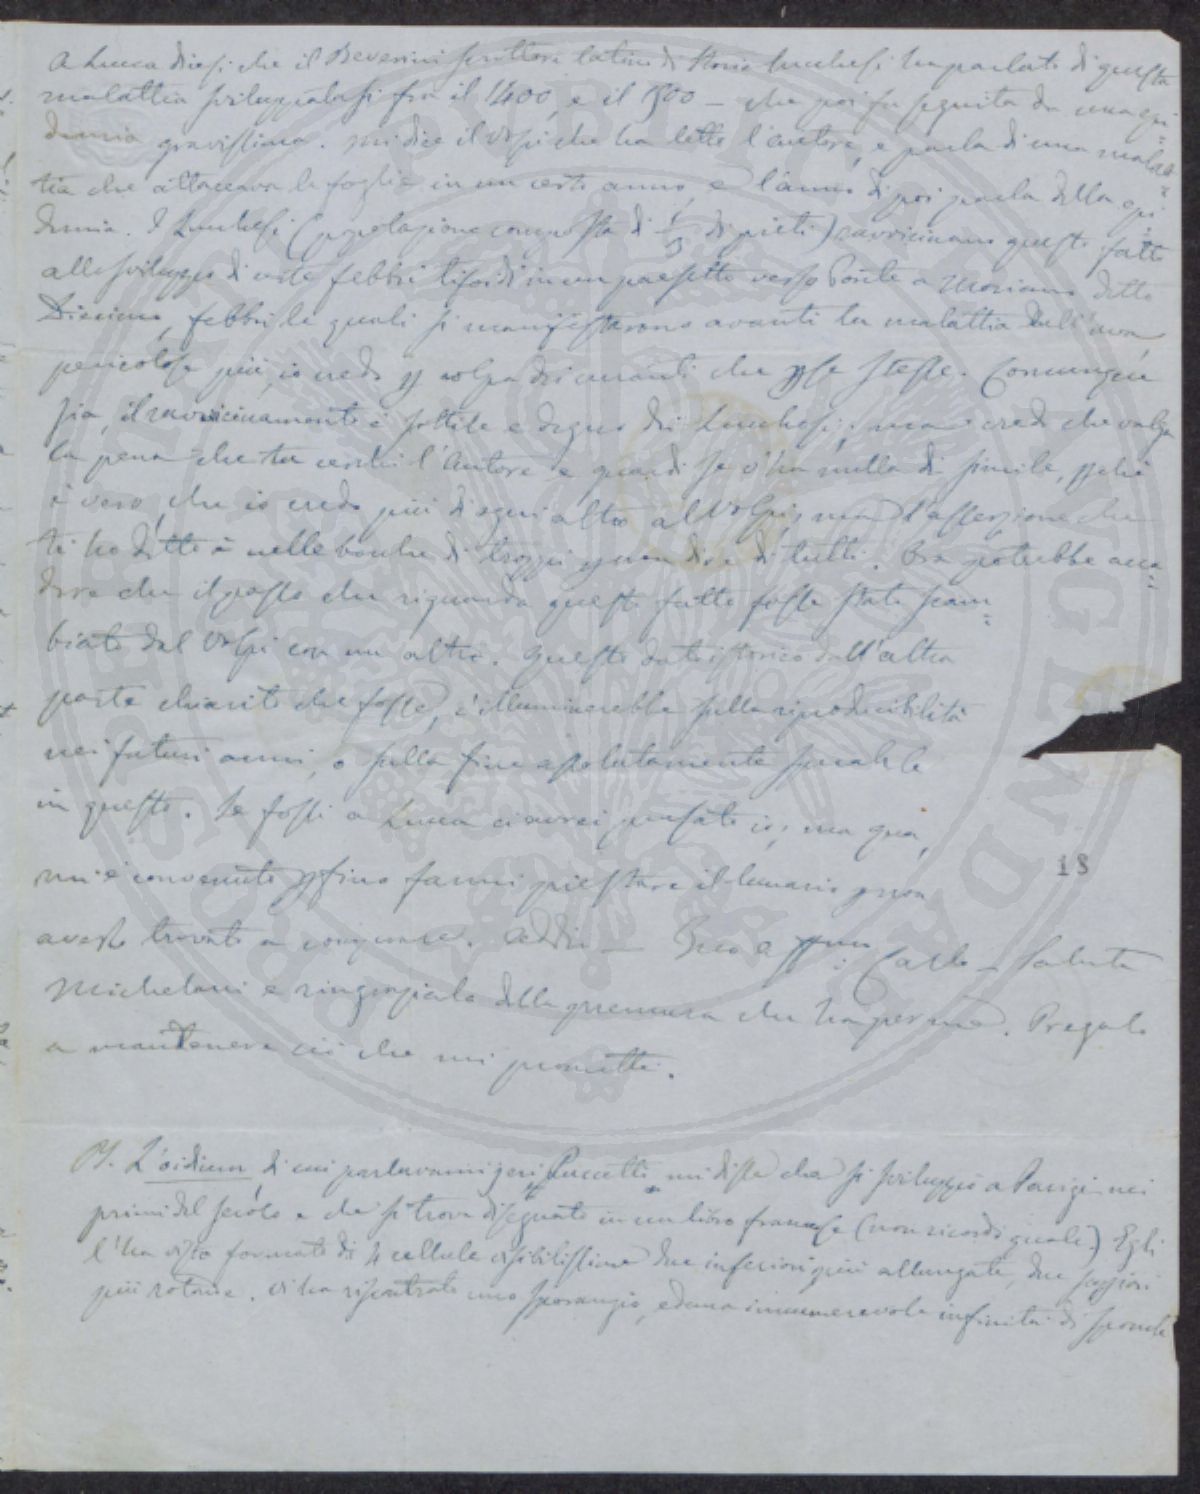 A Lucca dicesi che il Beverini scrittore latino di Storie Lucchesi ha parlato di questa
malattia sviluppatasi fra il 1400, e il 1500 — che poi fu seguita da una epi=
demia gravissima. Mi dice il Volpi che ha letto l'autore, e parla di una malat=
tia che attaccava le foglie in un certo anno, e l'anno di poi parla della epi=
demia. I Lucchesi (popolazione composta di 1/3 di preti) ravvicinano questo fatto
allo sviluppo di certe febbri tifoidi in un paesetto verso Ponte a Moriano detto
Diecimo, febbri le quali si manifestarono avanti la malattia dell'uva,
pericolose più, io credo p colpa dei curanti che p se stesse. Comunque
sia, il ravvicinamento è sottile e degno dei Lucchesi; ma credo che valga
la pena che tu cerchi l'Autore e guardi se v'ha nulla di simile, pchè
è vero, che io credo più d'ogni altro al Volpi, ma l'asserzione che
ti ho detto è nelle bocche di troppi p non dire di tutti. Ora potrebbe acca=
dere che il passo che riguarda questo fatto fosse stato scam=
biato dal Volpi con un altro. Questo dato istorico dall'altra
parte chiarito che fosse, c'illuminerebbe sulla riproducibilità
nei futuri anni, o sulla fine assolutamente
in questo. Se fossi a Lucca ci avrei pensato io, ma qua,
mi è convenuto pfino farmi prestare il lunario p non
averlo trovato a comprare. Addio — Carlo — Saluta
Michelacci e ringrazialo della premura che ha per me. Pregalo
a mantenere ciò che mi promette.
PS. L'oidium, di cui parlavami jeri Puccetti mi disse che si sviluppò a Parigi nei
primi del secolo e che si trova disegnato in un libro francese (non ricordo quale.) Egli
l'ha visto formato di 4 cellule visibilissime due inferiori più allungate, due
più rotonde. Vi ha riscontrato uno sporangio, ed una innumerevole infinità di sporule
18